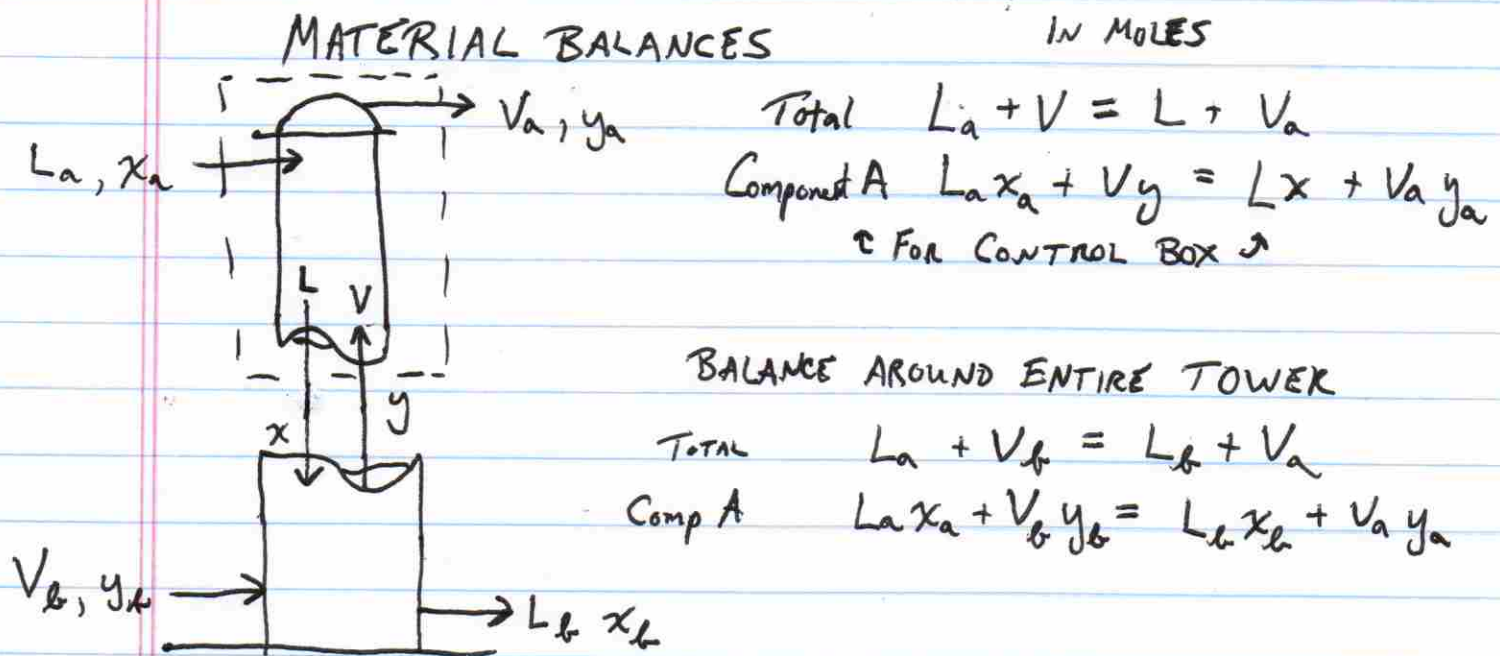 MATERIAL BALANCES
IN MOLES
Va, ya
La, xa
Total La + V = L + Va
Component A La xa + Vy = Lx + Va ya
↑ FOR CONTROL BOX ↗
L V
x y
BALANCE AROUND ENTIRE TOWER
TOTAL La + Vb = Lb + Va
Comp A La xa + Vb yb = Lb xb + Va ya
Vb, yb
Lb xb